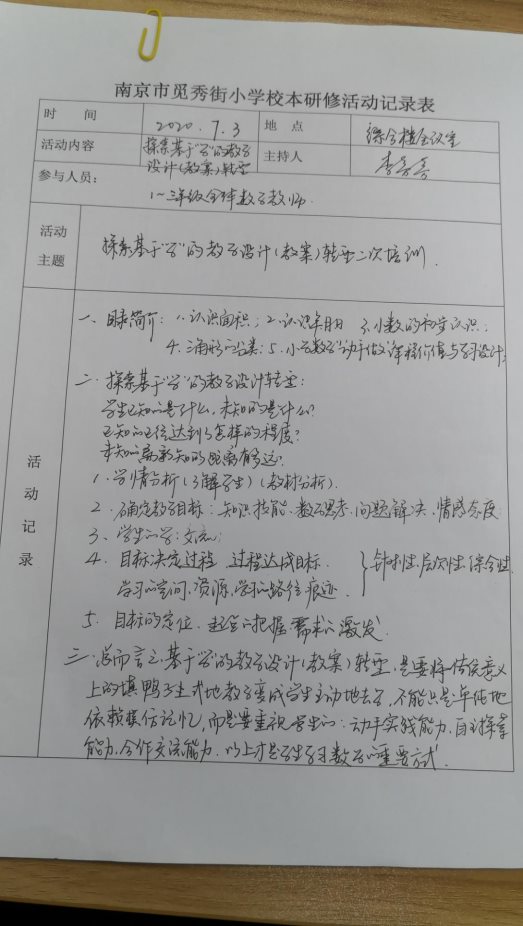 南京市觅秀街小学校本研修活动记录表
时 间 2020.7.3 地 点 综合楼会议室
活动内容 探索基于“学”的教学设计(教案)转型 主持人
参与人员:
1~三年级全体数学教师.
活动主题 探索基于“学”的教学设计(教案)转型二次培训.
活动记录
一、目录简介: 1.认识面积; 2.认识年月日 3.小数的初步认识;
4.三角形的分类; 5.小学数学“动手做”课程价值与学习设计;
二、探索基于“学”的教学设计转型:
学生已知的是什么,未知的是什么?
已知的已经达到了怎样的程度?
未知的离新知的距离有多远?
1.学情分析(了解学生)(教材分析).
2.确定教学目标: 知识技能、数学思考、问题解决、情感态度
3、学生的学: 交流;
4.目标决定过程 过程达成目标. 针对性、层次性、综合性.
学习的空间、资源、学习的路径痕迹.
5.目标的定位、 的把握 需求的激发.
三、总而言之,基于“学”的教学设计(教案)转型,是要将传统意义
上的填鸭子式地教学变成学生主动地去学,不能只是单纯地
依赖模仿记忆,而是要重视学生的: 动手实践能力、自主探索
能力、合作交流能力.以上才是学生学习数学的重要方式.